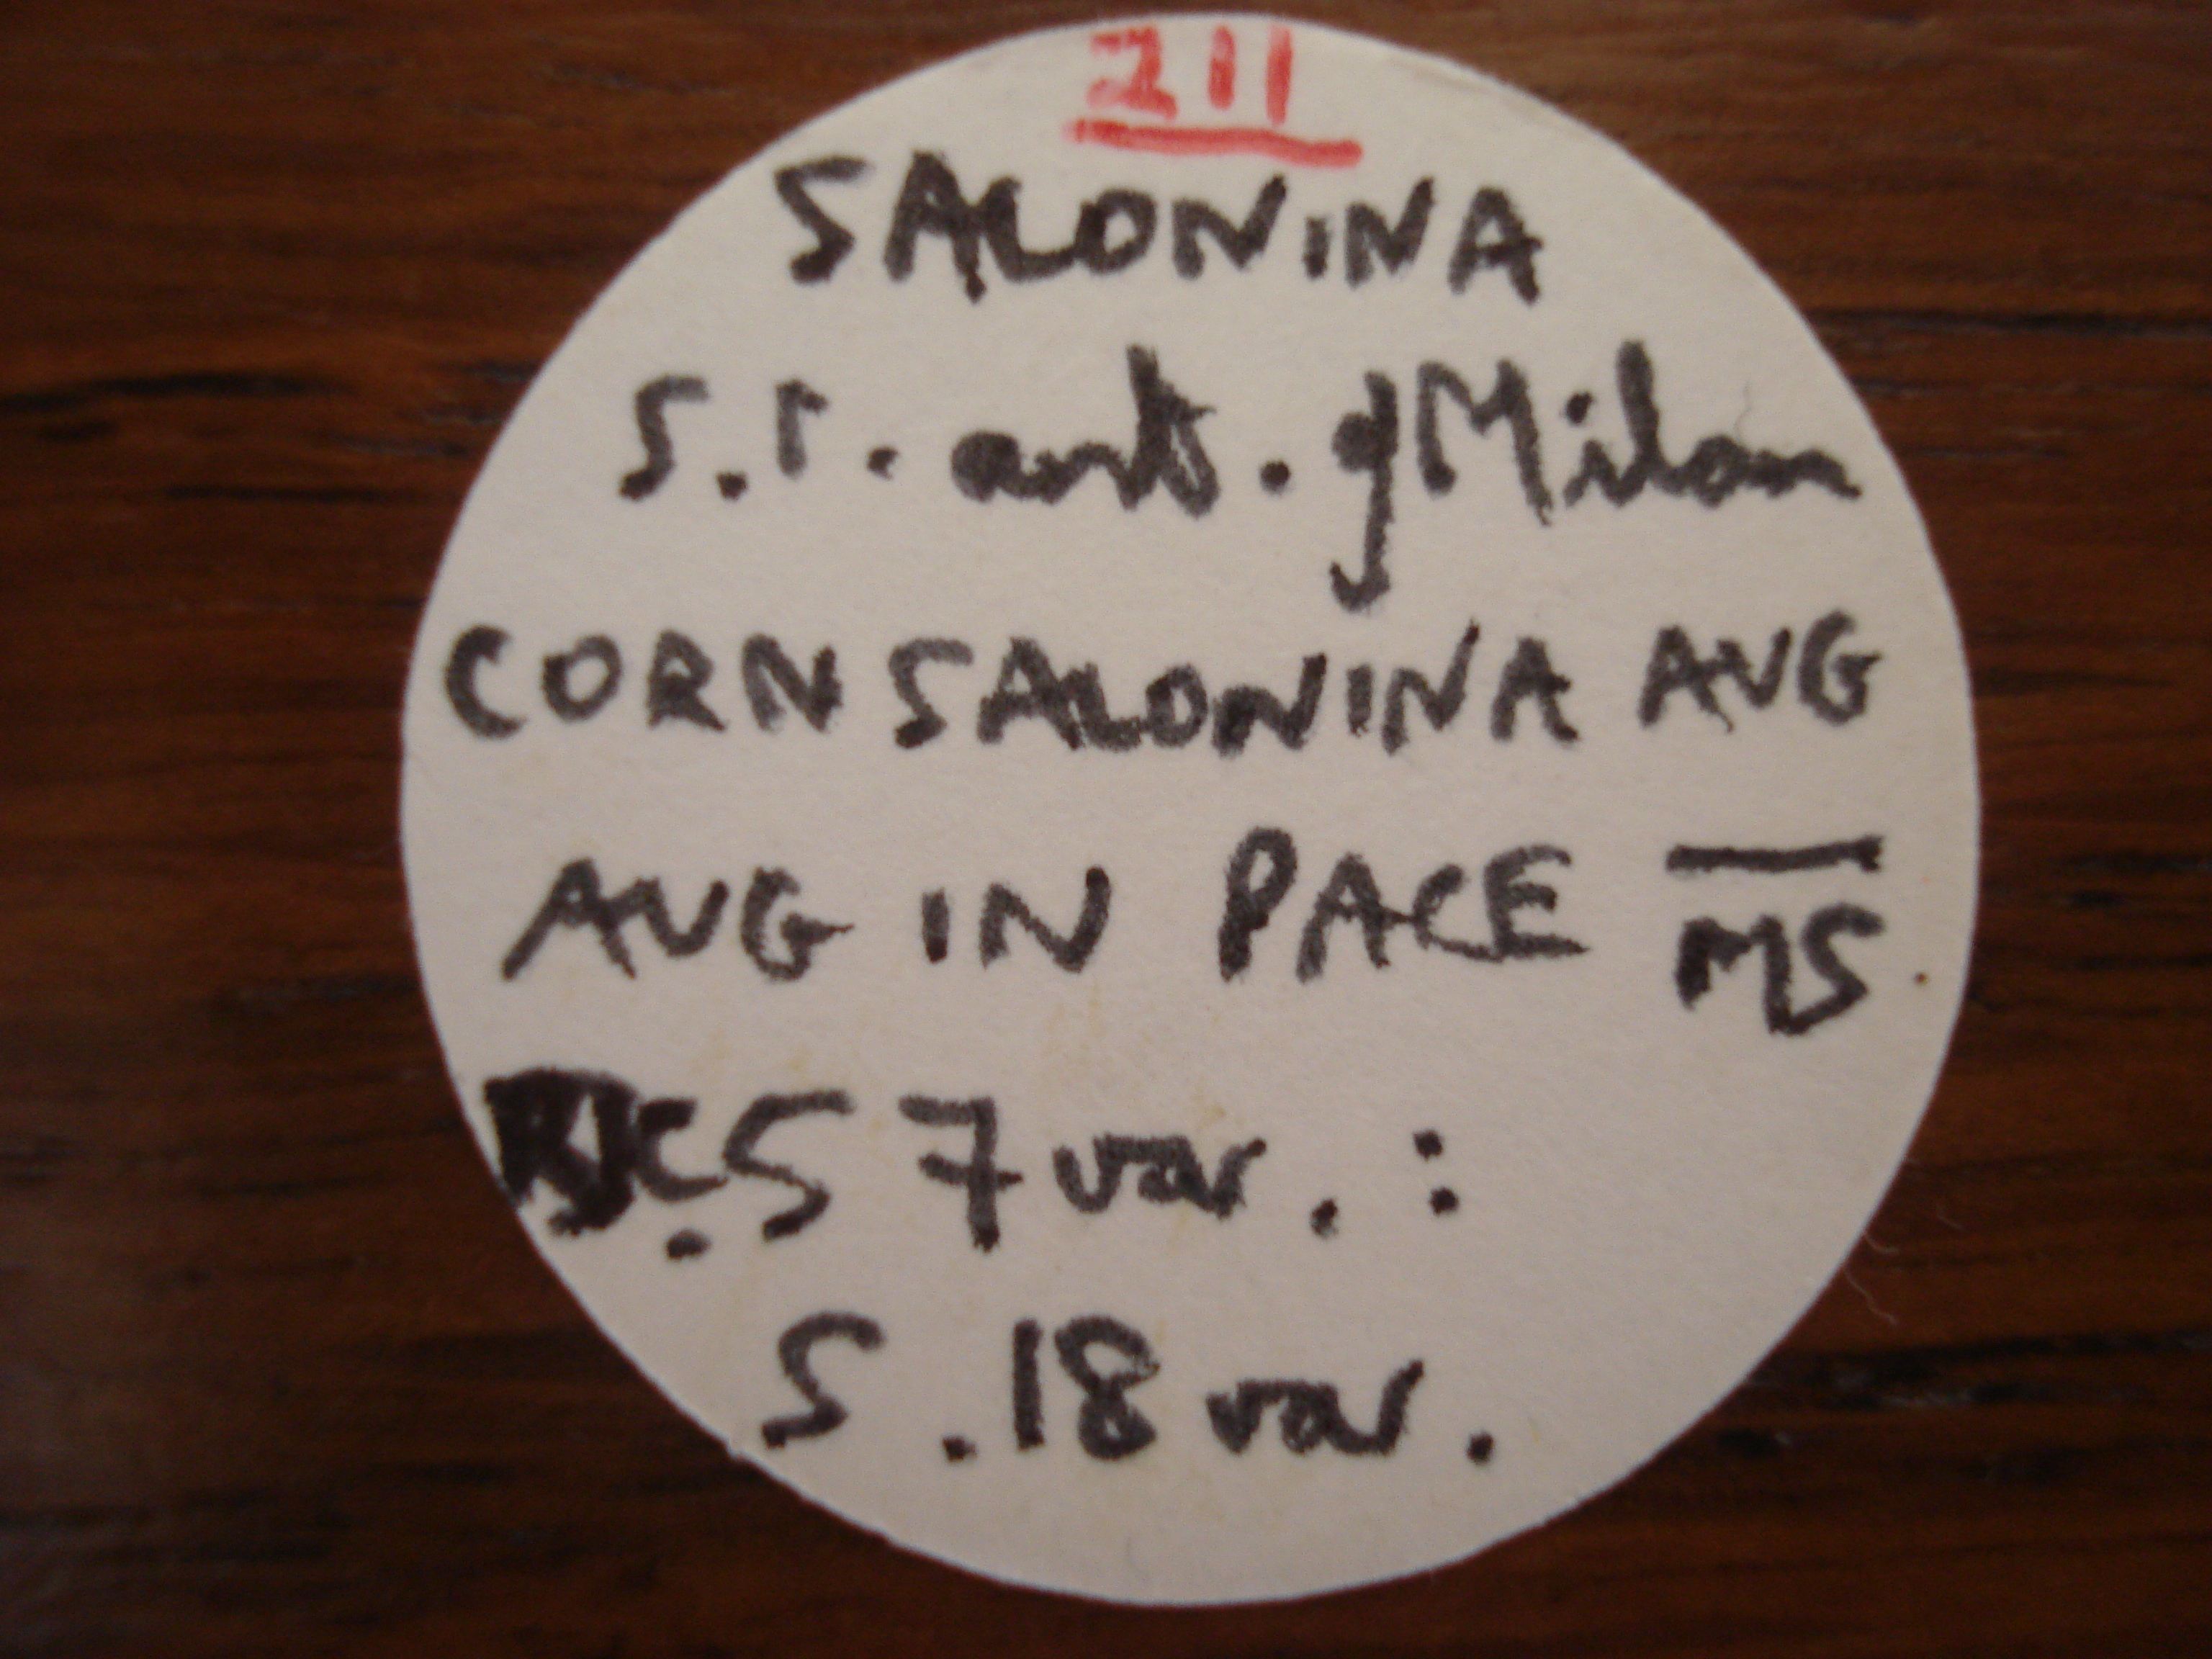 211
SALONINA
s.r. ant. of Milan
CORN SALONINA AVG
AVG IN PACE MS
RIC.57 var. :
S.18 var.